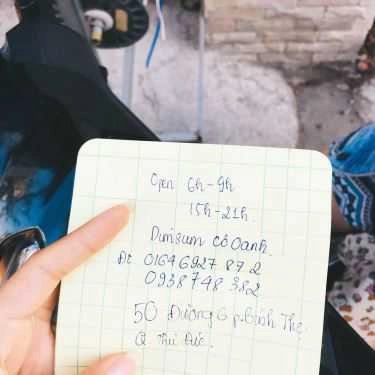 Open 6h - 9h
15h - 21h.
Dimsum cô Oanh.
Đt 0164 6927 87 2
0938 748 382
50 Đường 6 p. Bình Thọ
Q Thủ Đức.